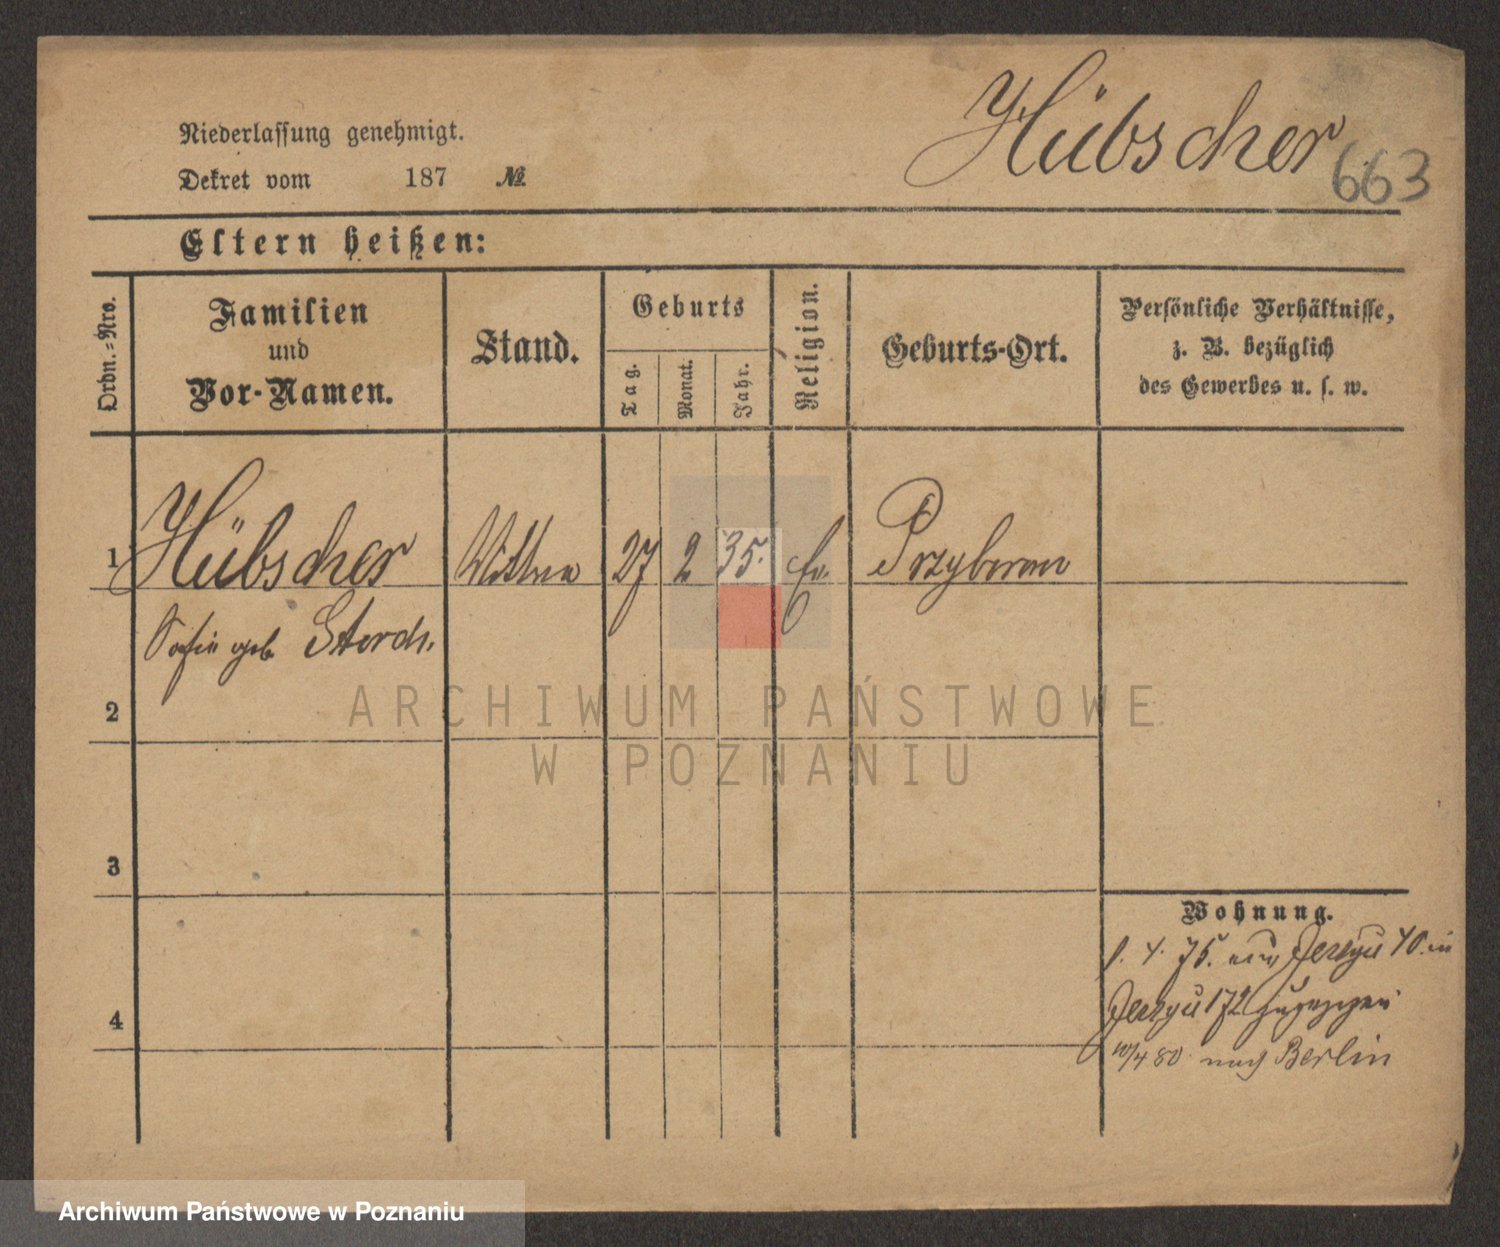 Niederlassung genehmigt.
Dekret vom 187 №
Hübscher
663
Eltern heißen:
Ordn.-Nro.
Familien
und
Vor-Namen.
Stand.
Geburts
Tag.
Monat.
Jahr.
Religion.
Geburts-Ort.
Persönliche Verhältnisse,
z. B. bezüglich
des Gewerbes u. s. w.
1 Hübscher Wittwe 27 2 35. Ev.
Sofie geb. Storch.
2
ARCHIWUM PAŃSTWOWE
W POZNANIU
3
Wohnung.
4. 75. Jerzyce 40. in
4 Jerzyce 172 zugezogen
10/4 80 nach Berlin
Archiwum Państwowe w Poznaniu